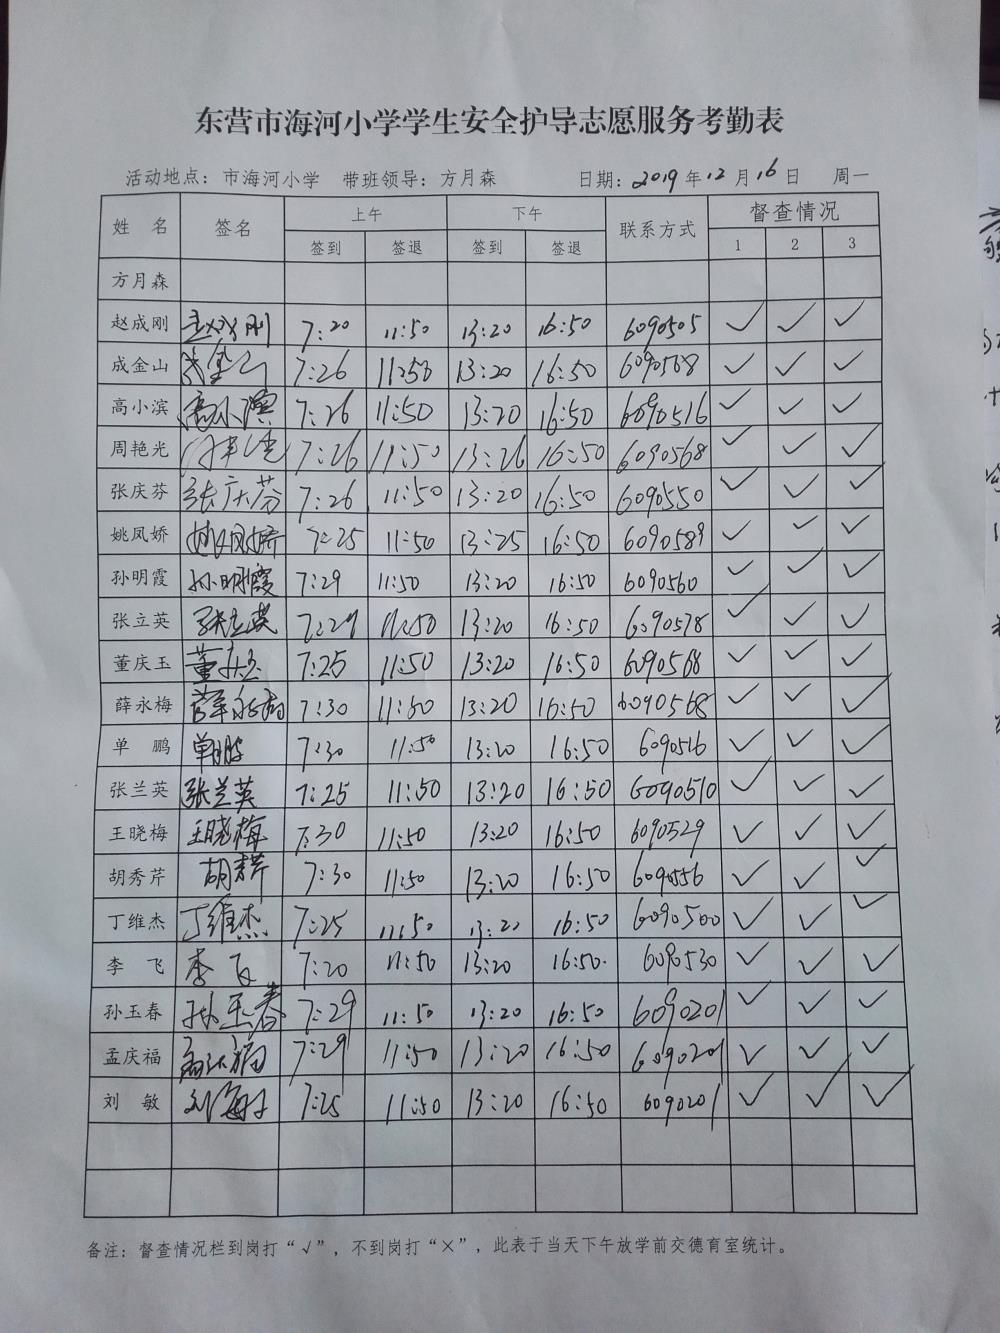 东营市海河小学学生安全护导志愿服务考勤表
活动地点：市海河小学 带班领导：方月森 日期：2019年12月16日 周一
姓 名 签名 上午 下午 联系方式 督查情况
签到 签退 签到 签退 1 2 3
方月森
赵成刚 赵成刚 7:20 11:50 13:20 16:50 6090505 ✓ ✓ ✓
成金山 成金山 7:26 11:50 13:20 16:50 6090568 ✓ ✓ ✓
高小滨 高小滨 7:26 11:50 13:20 16:50 6090516 ✓ ✓ ✓
周艳光 周艳光 7:26 11:50 13:26 16:50 6090568 ✓ ✓ ✓
张庆芬 张庆芬 7:26 11:50 13:20 16:50 6090550 ✓ ✓ ✓
姚凤娇 姚凤娇 7:25 11:50 13:25 16:50 6090589 ✓ ✓ ✓
孙明霞 孙明霞 7:29 11:50 13:20 16:50 6090560 ✓ ✓ ✓
张立英 张立英 7:29 11:50 13:20 16:50 6090578 ✓ ✓ ✓
董庆玉 董庆玉 7:25 11:50 13:20 16:50 6090568 ✓ ✓ ✓
薛永梅 薛永梅 7:30 11:50 13:20 16:50 6090568 ✓ ✓ ✓
单 鹏 单鹏 7:30 11:50 13:20 16:50 6090516 ✓ ✓ ✓
张兰英 张兰英 7:25 11:50 13:20 16:50 6090510 ✓ ✓ ✓
王晓梅 王晓梅 7:30 11:50 13:20 16:50 6090529 ✓ ✓ ✓
胡秀芹 胡秀芹 7:30 11:50 13:20 16:50 6090556 ✓ ✓ ✓
丁维杰 丁维杰 7:25 11:50 13:20 16:50 6090500 ✓ ✓ ✓
李 飞 李飞 7:20 11:50 13:20 16:50 6090530 ✓ ✓ ✓
孙玉春 孙玉春 7:29 11:50 13:20 16:50 6090201 ✓ ✓ ✓
孟庆福 孟庆福 7:29 11:50 13:20 16:50 6090201 ✓ ✓ ✓
刘 敏 刘 7:25 11:50 13:20 16:50 6090201 ✓ ✓ ✓
备注：督查情况栏到岗打“√”，不到岗打“×”，此表于当天下午放学前交德育室统计。